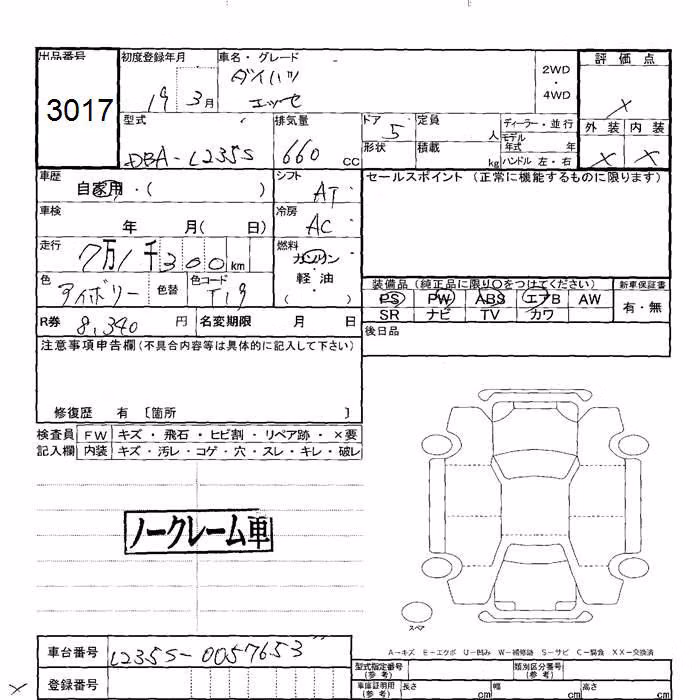 出品番号 初度登録年月 車名・グレード 評価点
3017 19 3月 ダイハツ エッセ 2WD・4WD ×
型式 排気量 ドア 定員 ディーラー・並行 外装 内装
DBA-L235S 660 cc 5 人 モデル年式 年 × ×
形状 積載 kg ハンドル 左・右
車歴 シフト セールスポイント (正常に機能するものに限ります)
自家用・( ) AT
車検 冷房
年 月( 日) AC
走行 燃料
7万1千300km ガソリン・軽油
色 色替 色コード ( )
アイボリー T19
装備品(純正品に限り○をつけてください) 新車保証書
PS PW ABS エアB AW 有・無
SR ナビ TV カワ
R券 8,340 円 名変期限 月 日
後日品
注意事項申告欄(不具合内容等は具体的に記入して下さい)
修復歴 有 〔箇所 〕
検査員 FW キズ・飛石・ヒビ割・リペア跡・×要
記入欄 内装 キズ・汚レ・コゲ・穴・スレ・キレ・破レ
ノークレーム車
スペア
A-キズ E-エクボ U-凹み W-補修跡 S-サビ C-腐食 XX-交換済
車台番号 L235S-0057653
登録番号
型式指定番号(参考) 類別区分番号(参考)
車庫証明用(参考) 長さ cm 幅 cm 高さ cm
×